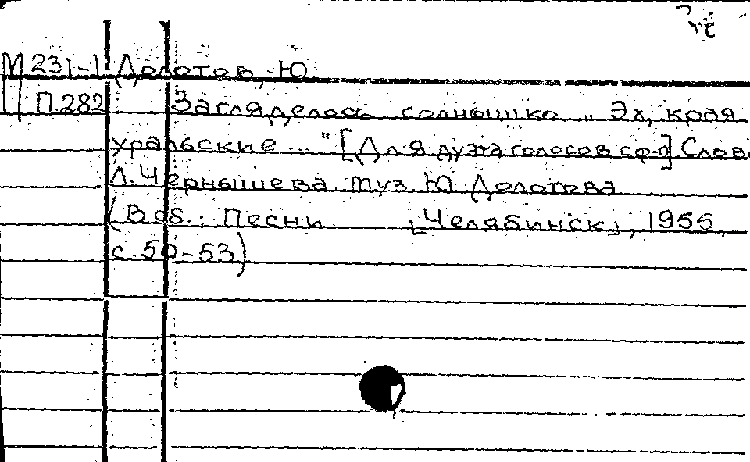 М 231-1 Делотов, Ю.
П.282 Загляделось солнышко... "Эх, края
уральские..." [Для дуэта голосов с ф-п] Слова
Л. Чернышева муз. Ю. Делотова
(В сб.: Песни [Челябинск], 1955,
с. 50-53)